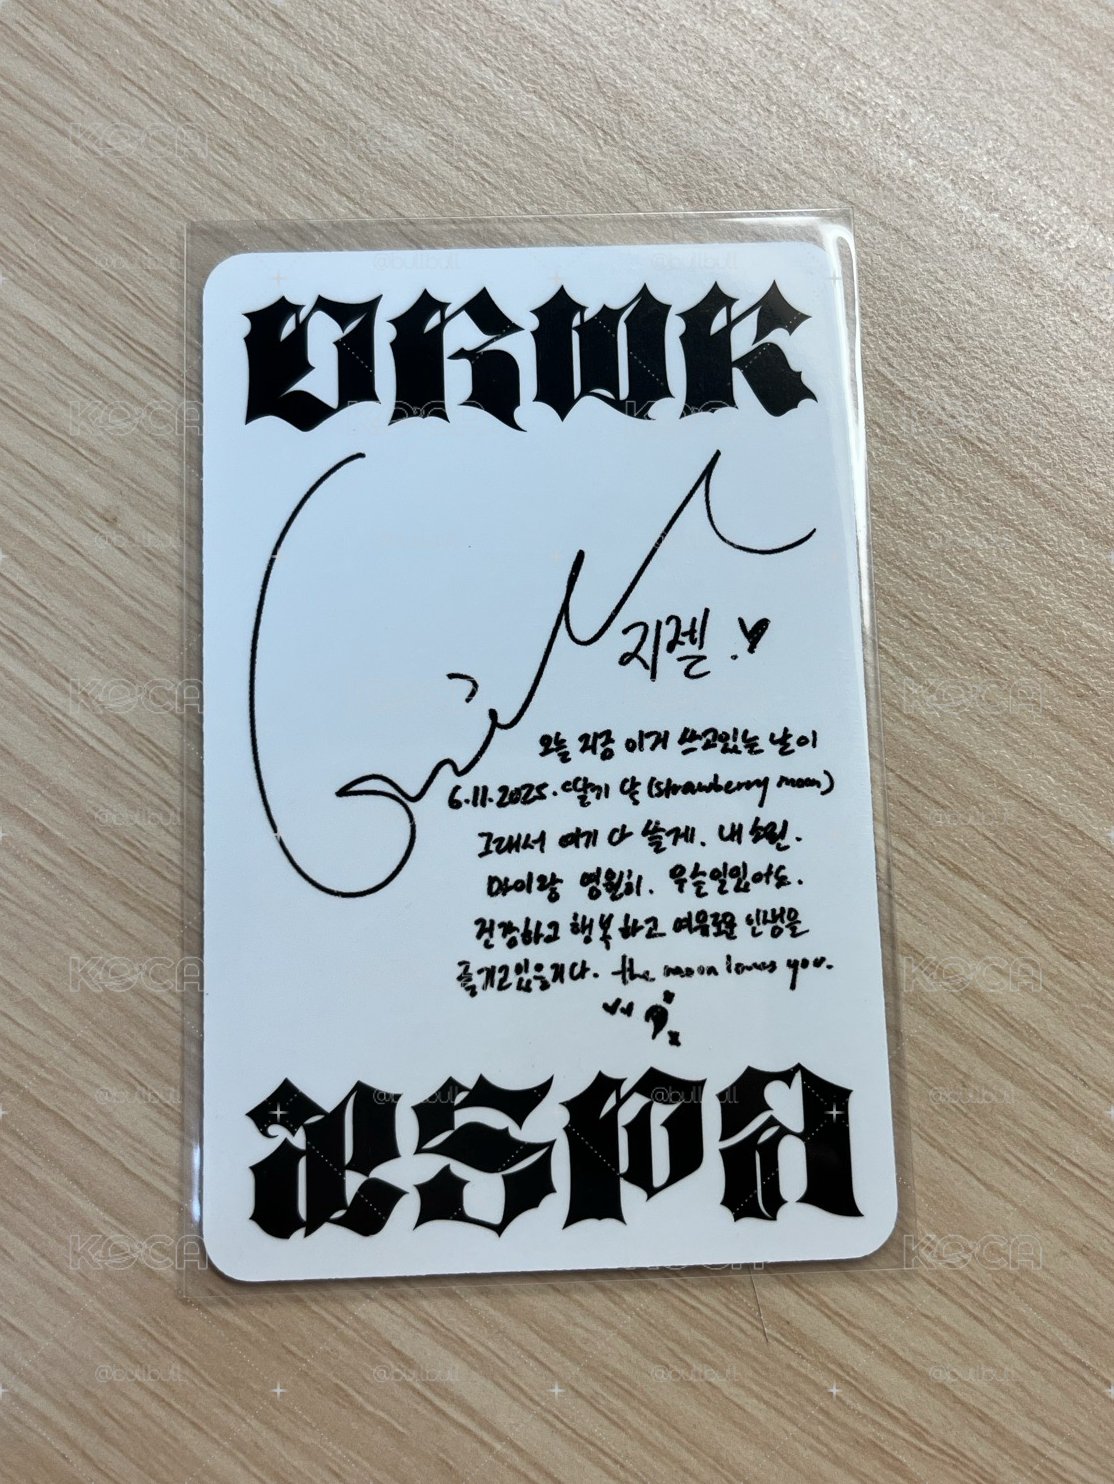 DRWK
지젤.
오늘 지금 이거 쓰고있는 날이
6.11.2025. 딸기 달 (strawberry moon)
그래서 여기 다 쓸게. 내 소원.
마이랑 영원히. 우늘일있어도.
건강하고 행복하고 여유로운 인생을
즐기고있응지다. the moon loves you.
aespa
KOCA
@bullbull